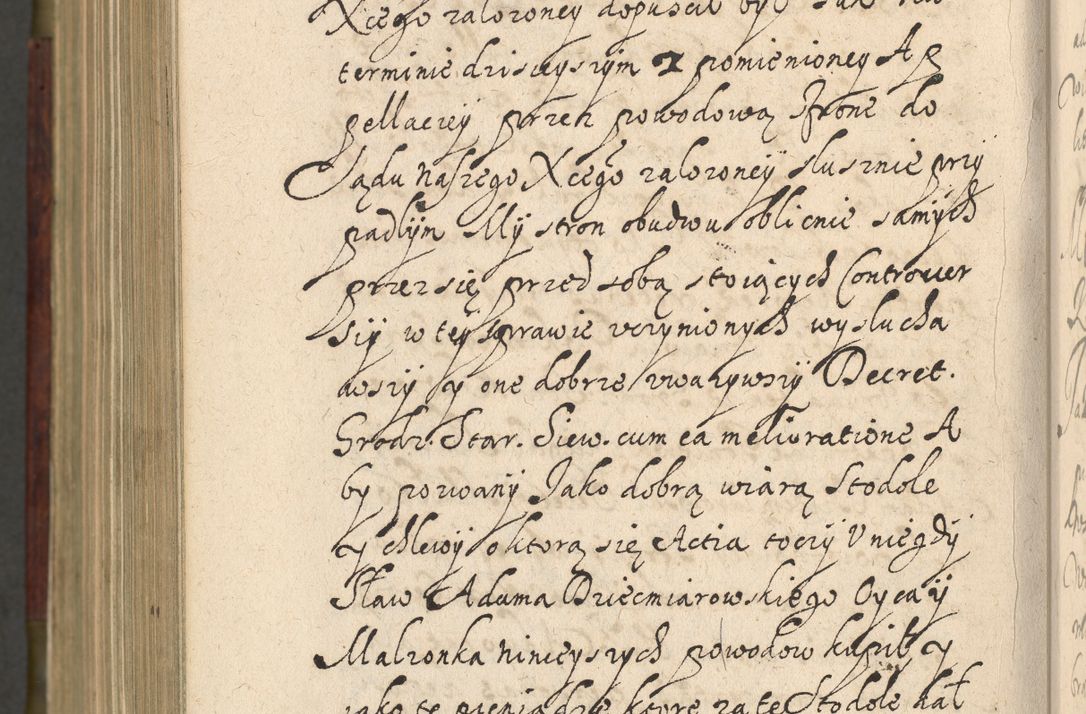 Xcego założoney dopuscił był
terminie dzisieyszym z pomienioney Ap
pellaciey przez powodową stronę do
Sądu naszego Xcego założoney słusznie przy
padłym My stron obudwu oblicznie samych
przez się przed sobą stoiących Contrower
siy w tey sprawie uczynionych wysłucha
wszy y one dobrze uważywszy Decret.
Grodz. Star. Siew. cum ea melioratione A
by pozwany Jako dobrą wiarą Stodołe
y chlewy o ktorą się Actia toczy U niegdy
Sław Adama Dziećmiarowskiego Oyca y
Małżonka ninieyszych powodow kupił y
iako te pieniądze ktore za te Stodołe dał